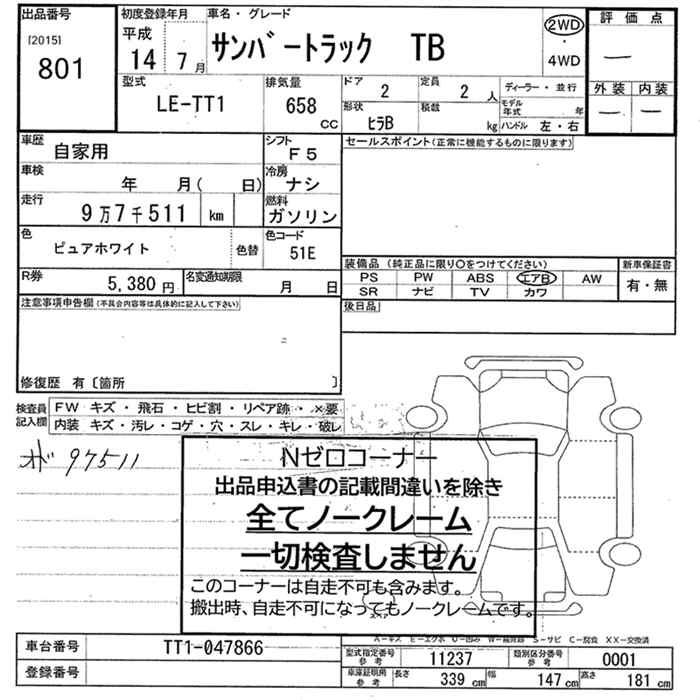 出品番号 初度登録年月 車名・グレード 評価点
[2015] 平成 2WD
801 14 7月 サンバートラック TB ・ 一
4WD
型式 排気量 ドア 2 定員 2 人 ディーラー・並行 外装 内装
LE-TT1 658 cc 形状 ヒラB 積載 kg モデル年式 年 一 一
ハンドル 左・右
車歴 自家用 シフト F5 セールスポイント(正常に機能するものに限ります)
車検 年 月( 日) 冷房 ナシ
走行 9万7千511 km 燃料 ガソリン
色 ピュアホワイト 色替 色コード 51E
装備品(純正品に限り○をつけてください) 新車保証書
R券 5,380円 名変通知期限 月 日 PS PW ABS エアB AW 有・無
SR ナビ TV カワ
注意事項申告欄(不具合内容等は具体的に記入して下さい) 後日品
修復歴 有〔箇所 〕
検査員記入欄 FW キズ・飛石・ヒビ割・リペア跡・×要
内装 キズ・汚レ・コゲ・穴・スレ・キレ・破レ
オド 97511
Nゼロコーナー
出品申込書の記載間違いを除き
全てノークレーム
一切検査しません
このコーナーは自走不可も含みます。
搬出時、自走不可になってもノークレームです。
A-キズ E-エクボ U-凹み W-補修跡 S-サビ C-腐食 XX-交換済
車台番号 TT1-047866 型式指定番号参考 11237 類別区分番号参考 0001
登録番号 車庫証明用参考 長さ 339 cm 幅 147 cm 高さ 181 cm